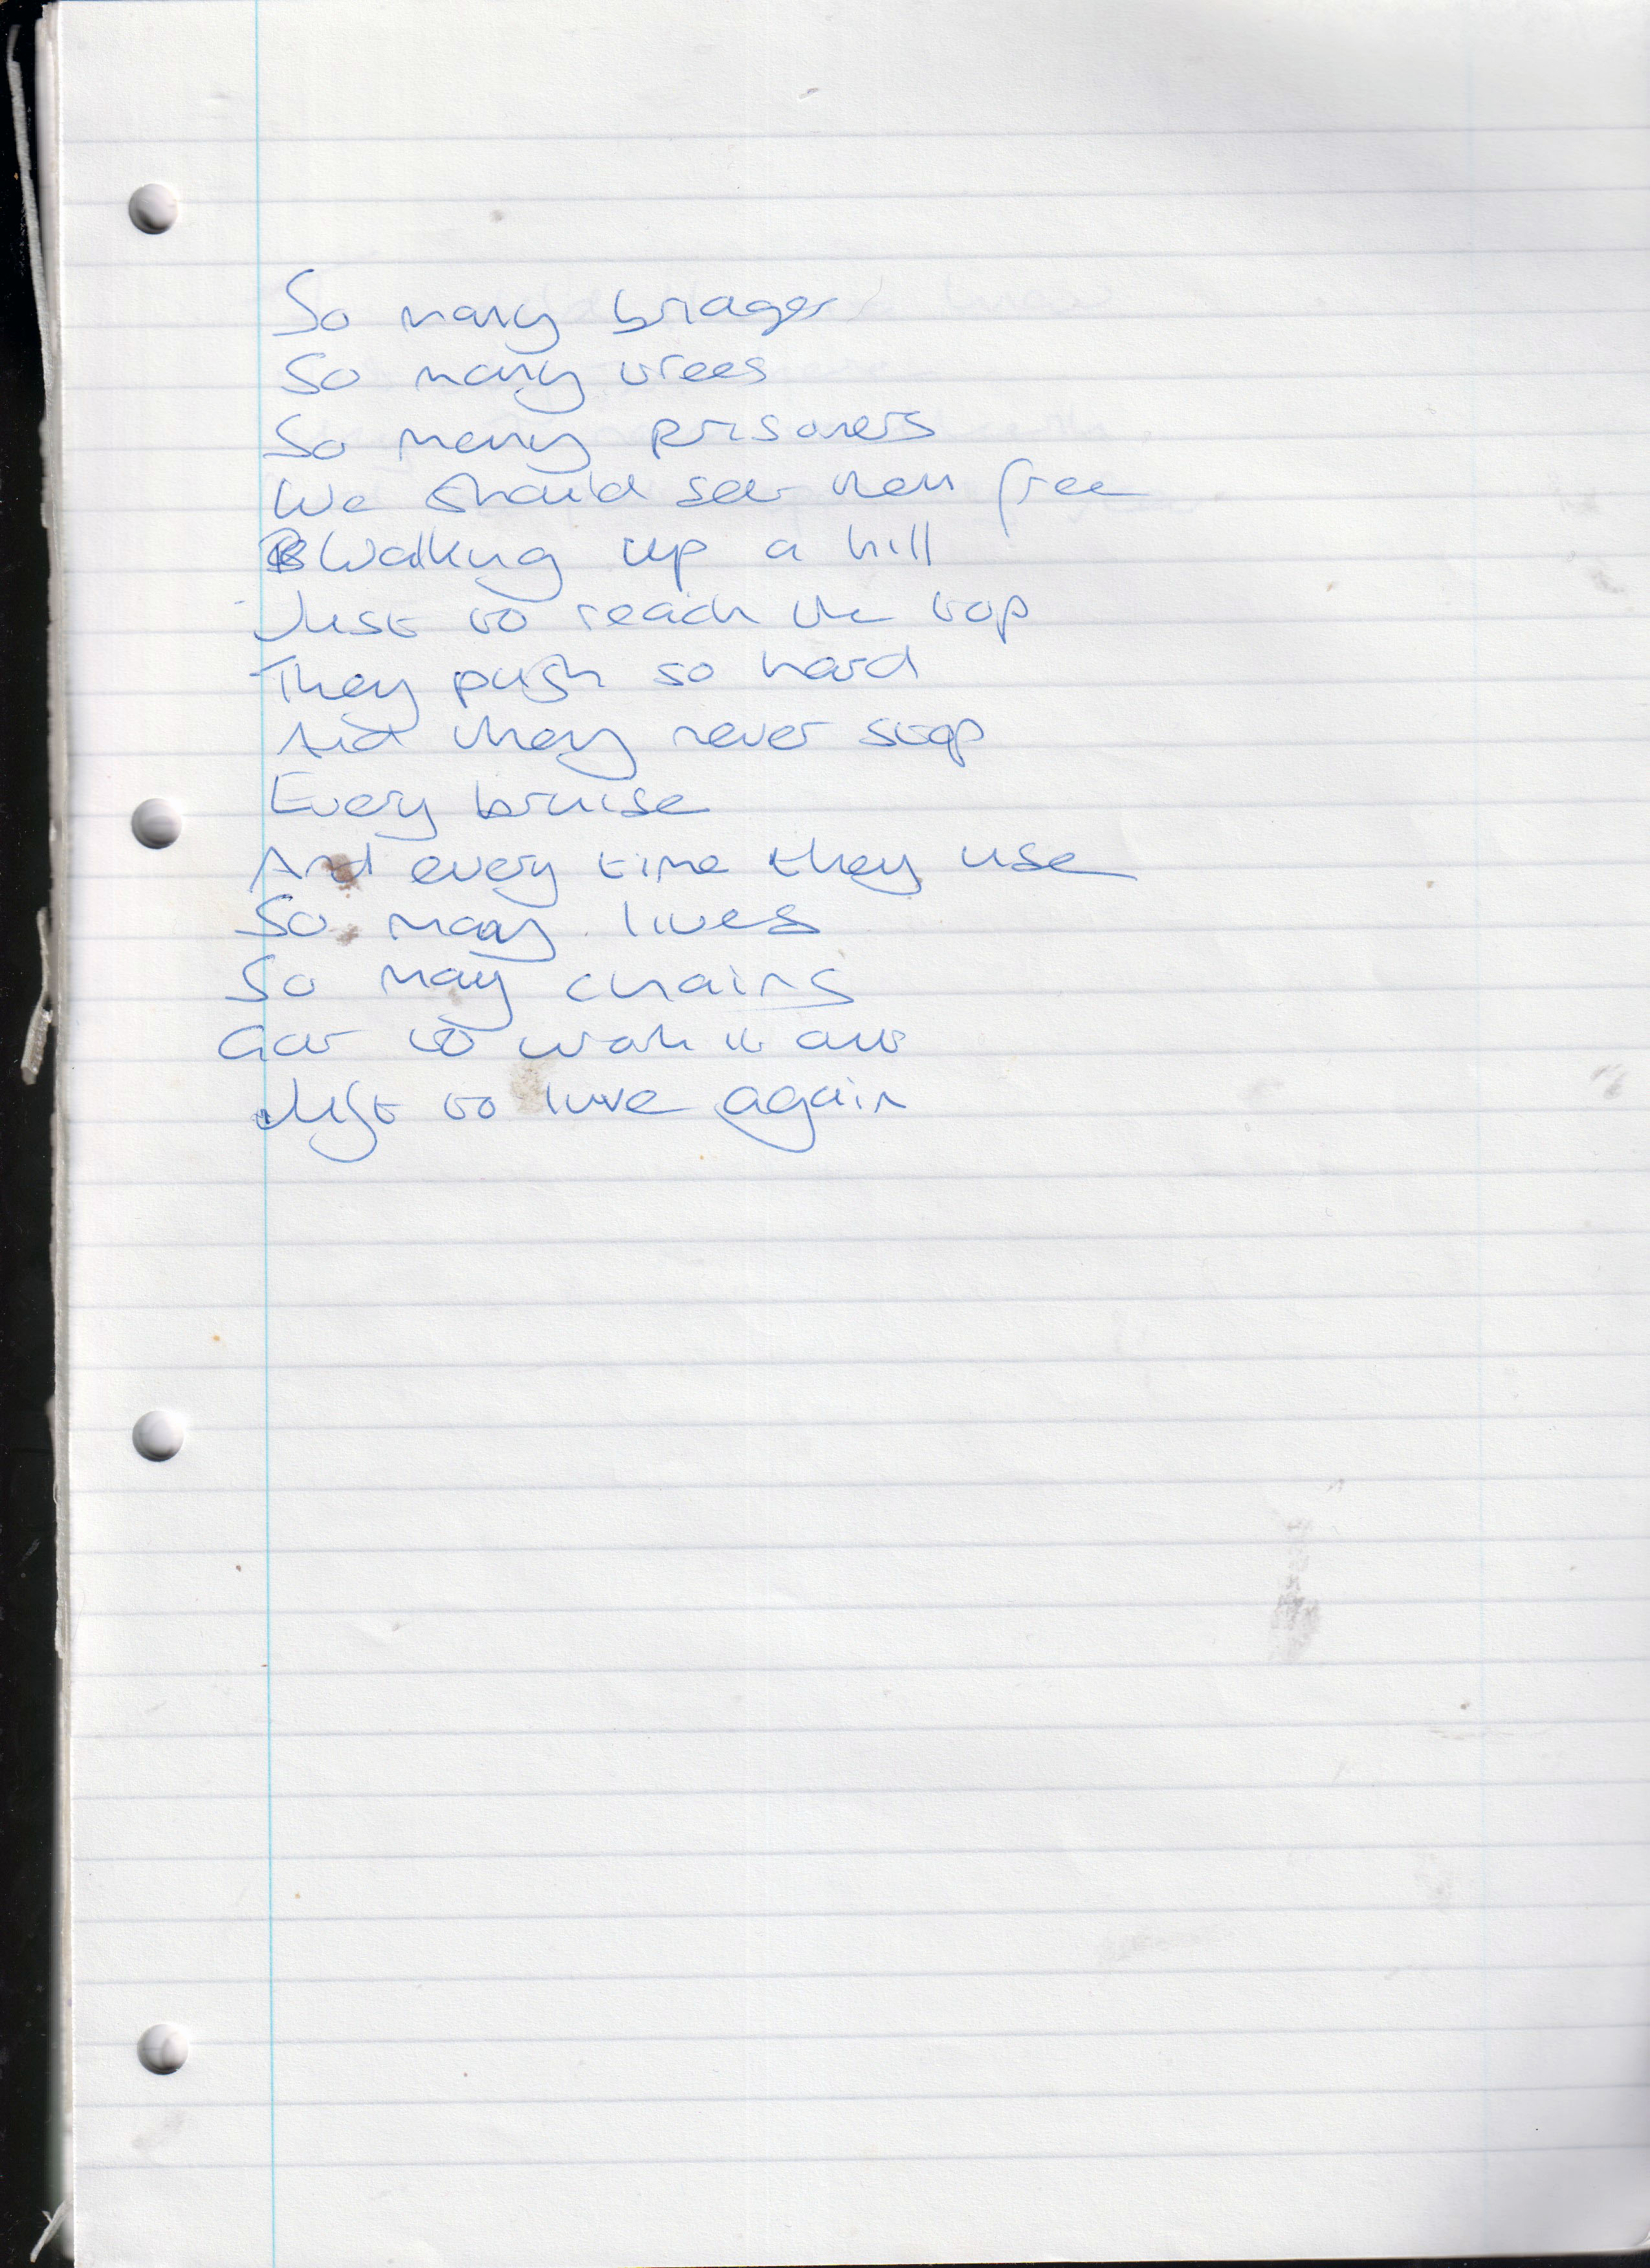 So many bridges
So many trees
So many prisoners
We should set them free
Walking up a hill
Just to reach the top
They push so hard
And they never stop
Every bruise
And every time they use
So many lives
So may chains
Got to work it out
Just to love again